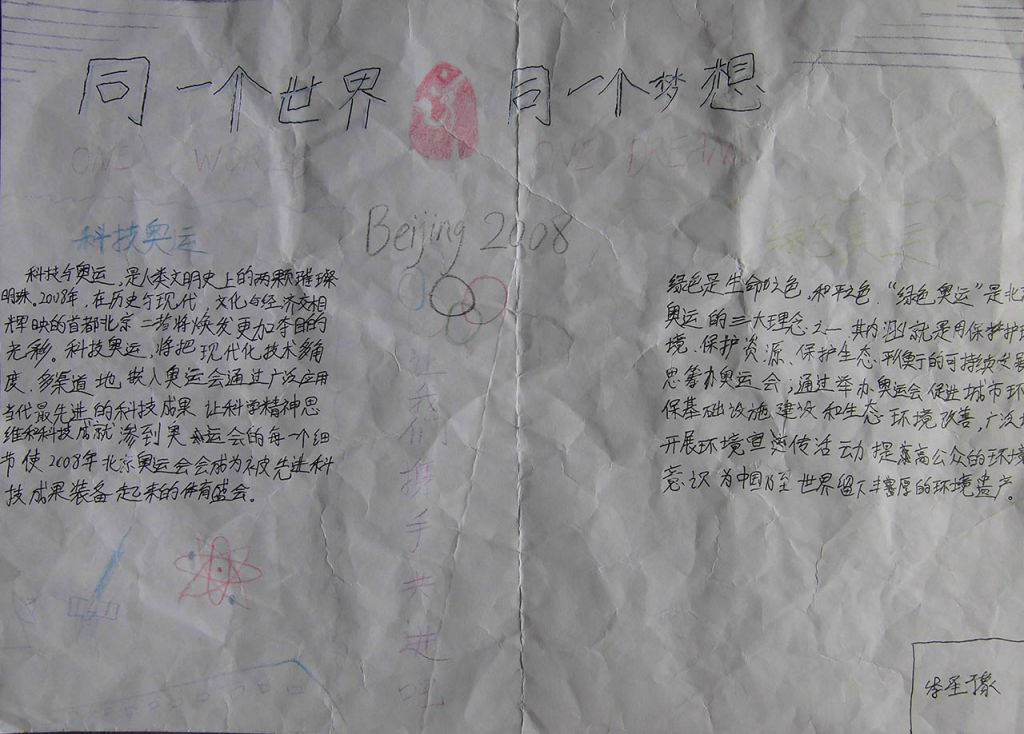 同一个世界 同一个梦想
ONE WORLD ONE DREAM
Beijing 2008
科技奥运
科技与奥运，是人类文明史上的两颗璀璨
明珠。2008年，在历史与现代，文化与经济交相
辉映的首都北京二者将焕发更加夺目的
光彩。科技奥运，将把现代化技术多角
度、多渠道地嵌入奥运会通过广泛应用
当代最先进的科技成果让科学精神思
维和科技成就渗到奥运会的每一个细
节使2008年北京奥运会会成为被先进科
技成果装备起来的体育盛会。
让我们携手共进吧
绿色奥运
绿色是生命之色，和平之色，“绿色奥运”是北
奥运的三大理念之一其内涵就是用保护
境、保护资源、保护生态平衡的可持续发展
思筹办奥运会；通过举办奥运会促进城市环
保基础设施建设和生态环境改善，广泛
开展环境宣传活动提高公众的环境
意识为中国乃至世界留下丰富厚的环境遗产。